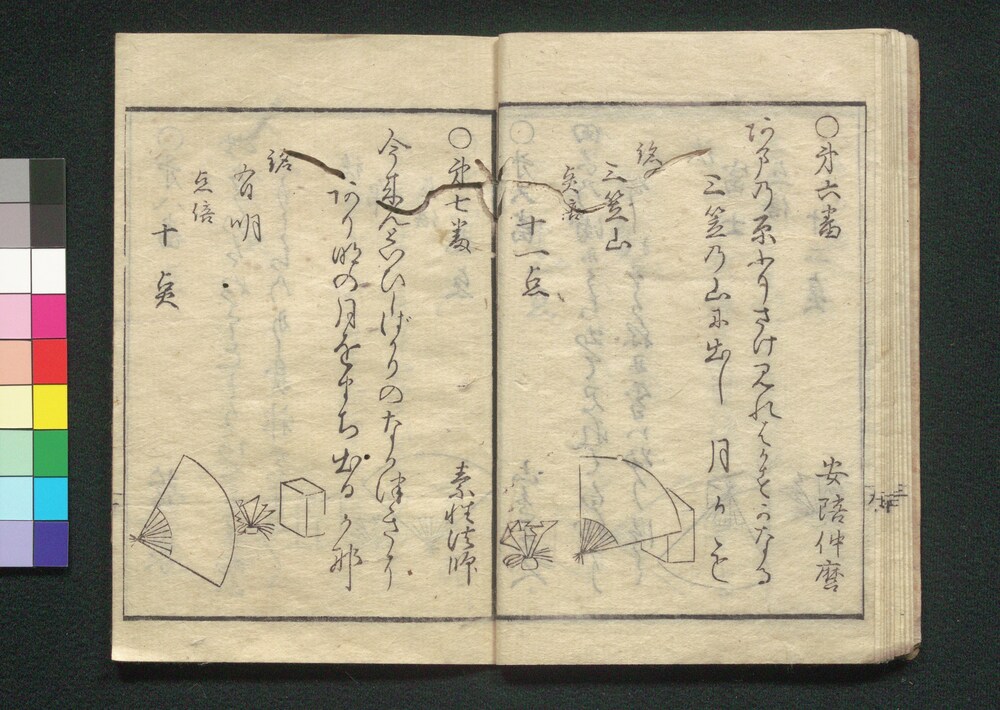 ○第六番 安陪仲麿
あまの原ふりさけ見ればかすかなる
三笠乃山に出し月かも
銘
三笠山
点倍
十一点
○第七番 素性法師
今来んといひしばかりのなか月の
あり明の月をまち出るか那
銘
有明
点倍
十点